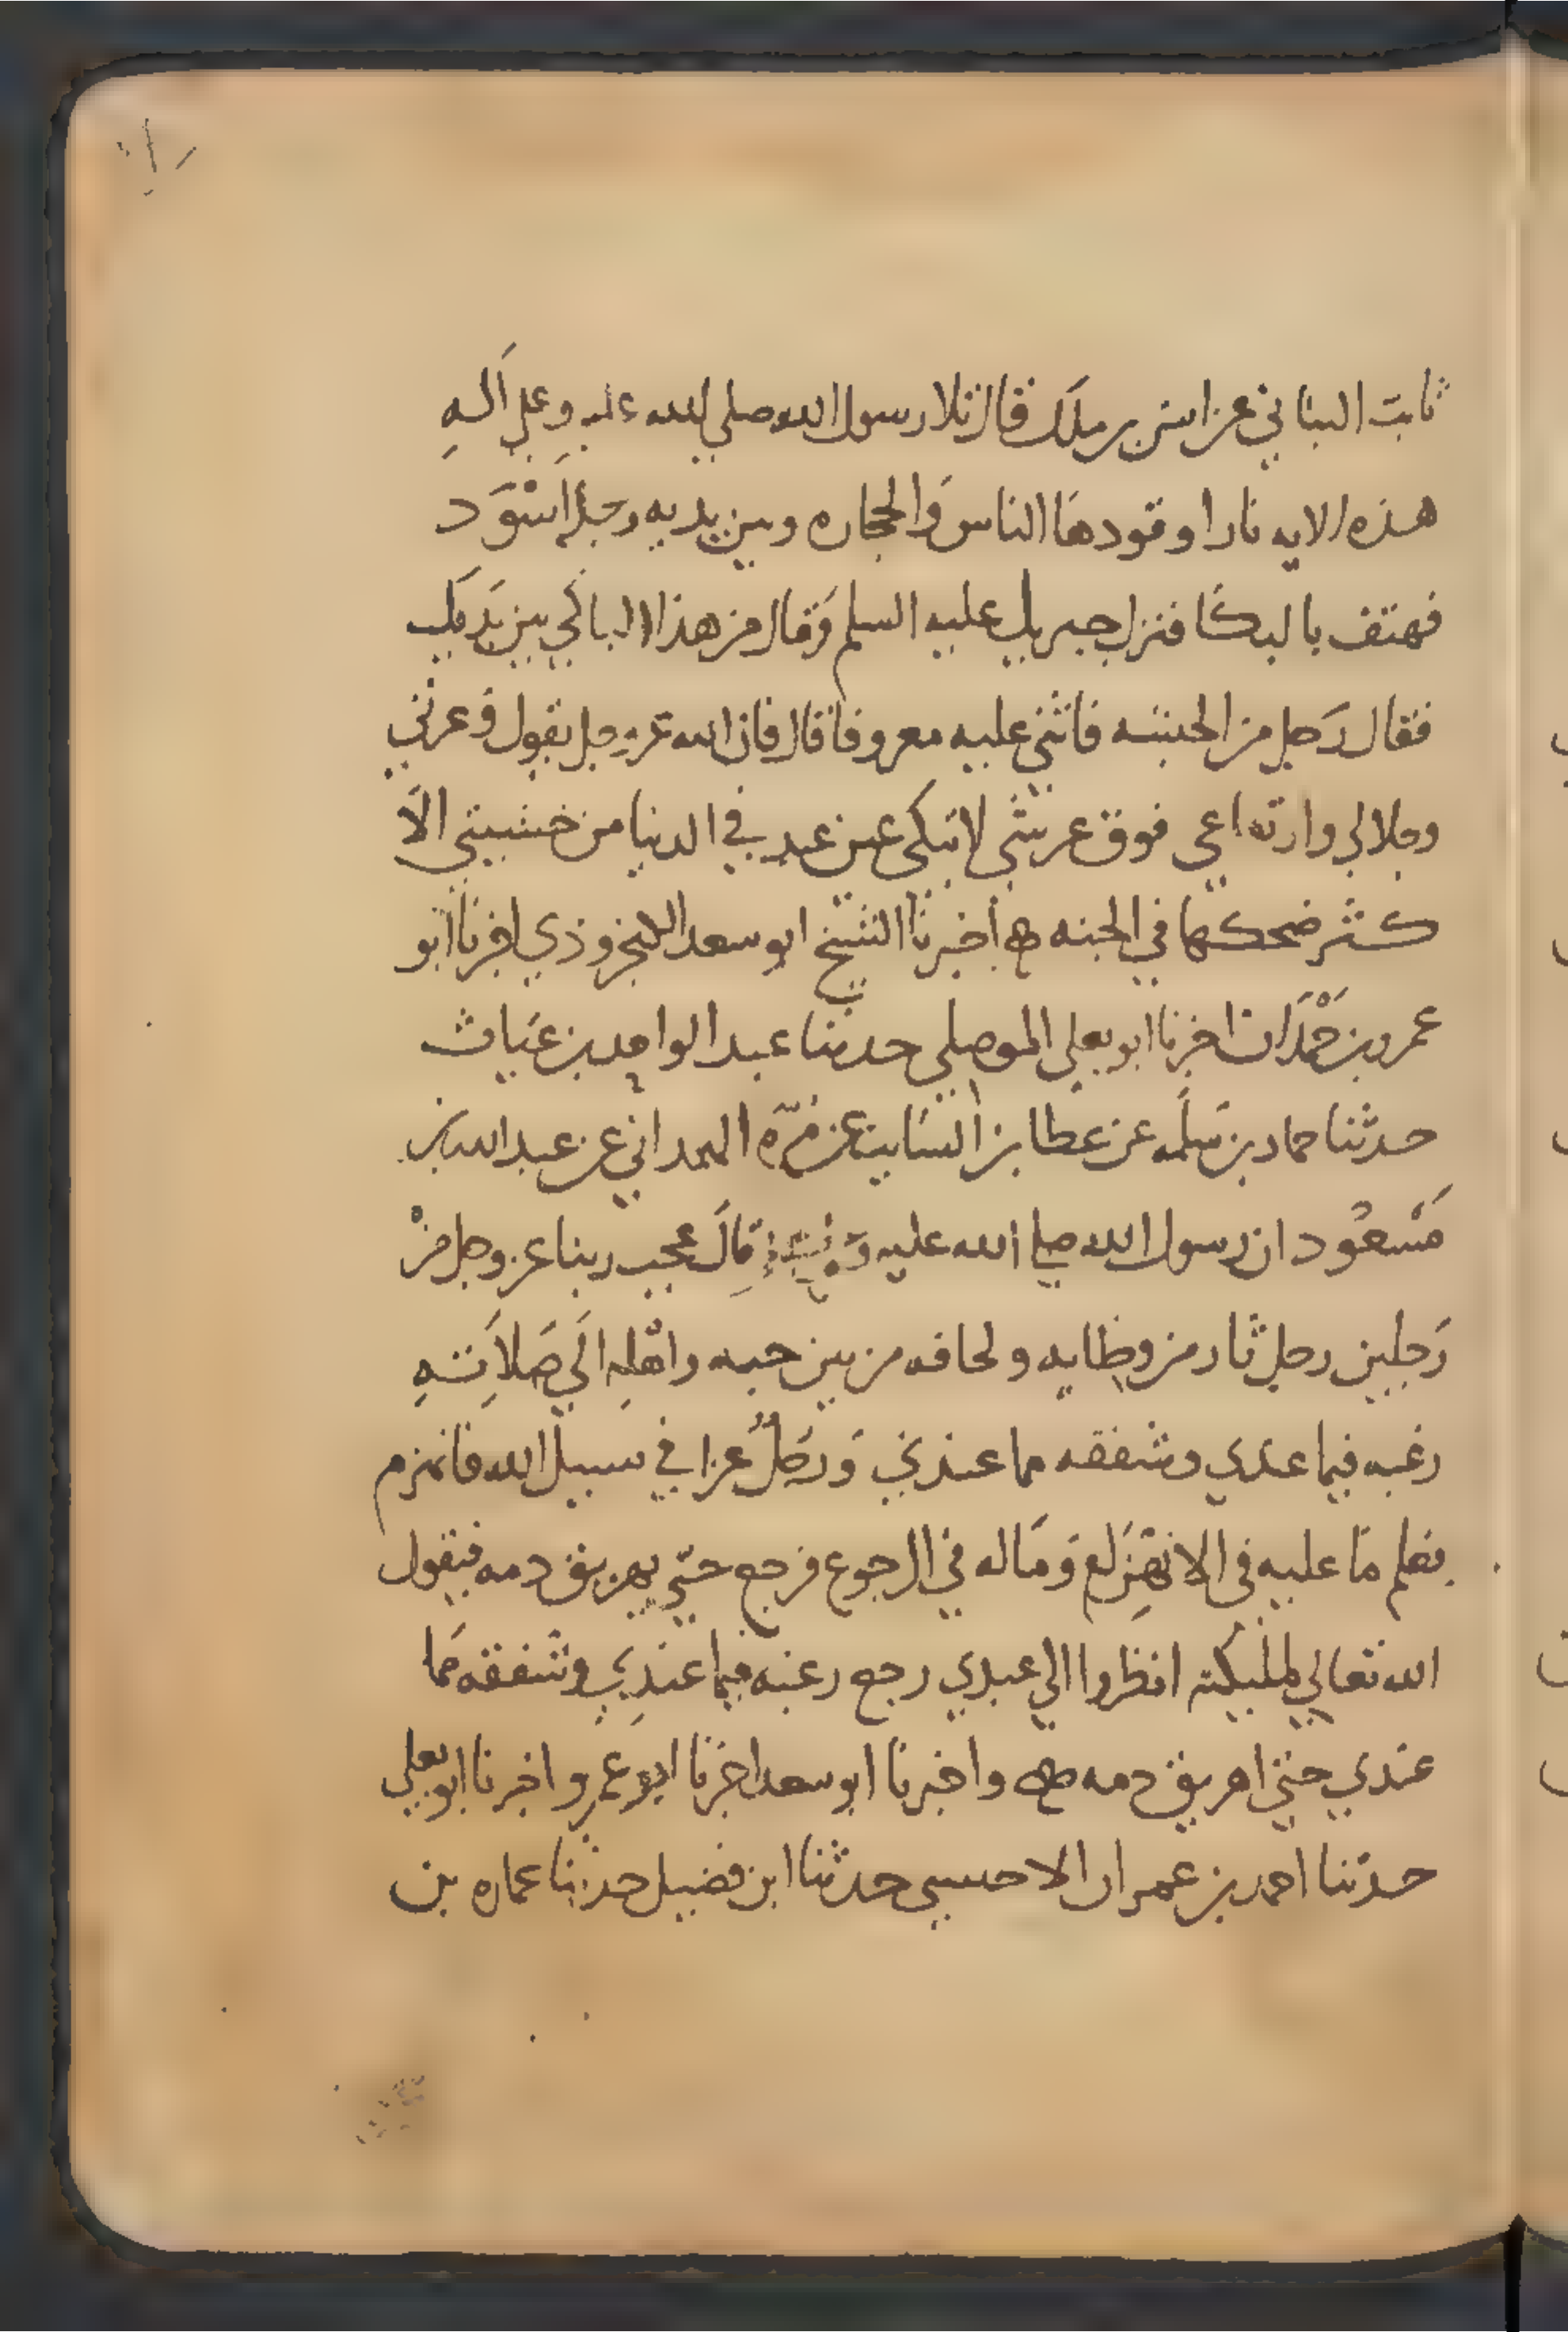 ثابت البناني عن انس بن ملك قال تلا رسول الله صلي الله عليه وعلي اله
هذه الايه نارا وقودها الناس والحجاره وبين يديه رجل اسود
فهتف بالبكا فنزل جبريل عليه السلم وقال من هذا الباكي بين يديك
فقال رجل من الحبشه فاثني عليه معروفا قال فان الله عز وجل يقول وعزتي
وجلالي وارتفاعي فوق عرشي لا تبكي عين عبد في الدنيا من خشيتي الا
كثر ضحكها في الجنه اخبرنا الشيخ ابو سعد الكنجروذي اخبرنا ابو
عمرو بن حمدان اخبرنا ابو يعلي الموصلي حدثنا عبد الواحد بن غياث
حدثنا حماد بن سلمه عن عطا بن السايب عن مره الهمداني عن عبد الله بن
مسعود ان رسول الله صلي الله عليه قال عجب ربنا عز وجل من
رجلين رجل ثار من وطايه ولحافه من بين حبه واهله الي صلاته
رغبه فيما عندي وشفقه مما عندي ورجل غزا في سبيل الله فانهزم
فعلم ما عليه في الانهزام وماله في الرجوع فرجع حتي يهريق دمه فيقول
الله تعالي لمليكته انظروا الي عبدي رجع رغبه فيما عندي وشفقه مما
عندي حتي اهريق دمه واخبرنا ابو سعد اخبرنا ابو عمرو اخبرنا ابو يعلي
حدثنا احمد بن عمران الاخنسي حدثنا ابن فضيل حدثنا عماره بن